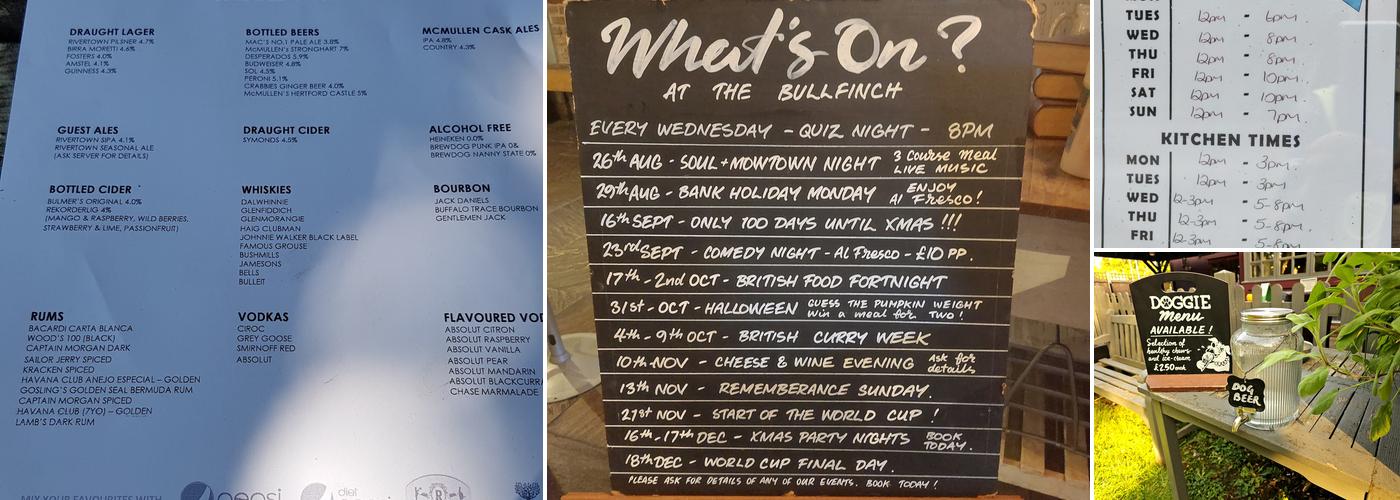 DRAUGHT LAGER
RIVERTOWN PILSNER 4.7%
BIRRA MORETTI 4.6%
FOSTERS 4.0%
AMSTEL 4.1%
GUINNESS 4.3%
BOTTLED BEERS
MAC'S NO.1 PALE ALE 3.8%
McMULLEN'S STRONGHART 7%
DESPERADOS 5.9%
BUDWEISER 4.8%
SOL 4.5%
PERONI 5.1%
CRABBIES GINGER BEER 4.0%
McMULLEN'S HERTFORD CASTLE 5%
MCMULLEN CASK ALES
IPA 4.8%
COUNTRY 4.3%
GUEST ALES
RIVERTOWN SIPA 4.1%
RIVERTOWN SEASONAL ALE
(ASK SERVER FOR DETAILS)
DRAUGHT CIDER
SYMONDS 4.5%
ALCOHOL FREE
HEINEKEN 0.0%
BREWDOG PUNK IPA 0&
BREWDOG NANNY STATE 0%
BOTTLED CIDER
BULMER'S ORIGINAL 4.0%
REKORDERLIG 4%
(MANGO & RASPBERRY, WILD BERRIES,
STRAWBERRY & LIME, PASSIONFRUIT)
WHISKIES
DALWHINNIE
GLENFIDDICH
GLENMORANGIE
HAIG CLUBMAN
JOHNNIE WALKER BLACK LABEL
FAMOUS GROUSE
BUSHMILLS
JAMESONS
BELLS
BULLEIT
BOURBON
JACK DANIELS
BUFFALO TRACE BOURBON
GENTLEMEN JACK
RUMS
BACARDI CARTA BLANCA
WOOD'S 100 (BLACK)
CAPTAIN MORGAN DARK
SAILOR JERRY SPICED
KRACKEN SPICED
HAVANA CLUB ANEJO ESPECIAL – GOLDEN
GOSLING'S GOLDEN SEAL BERMUDA RUM
CAPTAIN MORGAN SPICED
HAVANA CLUB (7YO) – GOLDEN
LAMB'S DARK RUM
VODKAS
CIROC
GREY GOOSE
SMIRNOFF RED
ABSOLUT
FLAVOURED VOD
ABSOLUT CITRON
ABSOLUT RASPBERRY
ABSOLUT VANILLA
ABSOLUT PEAR
ABSOLUT MANDARIN
ABSOLUT BLACKCURRA
CHASE MARMALADE
MIX YOUR FAVOURITES WITH
pepsi
diet
R
What's On?
AT THE BULLFINCH
EVERY WEDNESDAY - QUIZ NIGHT - 8PM
26th AUG - SOUL + MOWTOWN NIGHT 3 Course Meal LIVE MUSIC
29th AUG - BANK HOLIDAY MONDAY ENJOY Al Fresco!
16th SEPT - ONLY 100 DAYS UNTIL XMAS !!!
23rd SEPT - COMEDY NIGHT - Al Fresco - £10 PP.
17th - 2nd OCT - BRITISH FOOD FORTNIGHT
31st - OCT - HALLOWEEN GUESS THE PUMPKIN WEIGHT Win a meal for TWO!
4th - 9th OCT - BRITISH CURRY WEEK
10th NOV - CHEESE & WINE EVENING Ask for details
13th NOV - REMEMBERANCE SUNDAY.
21st NOV - START OF THE WORLD CUP !
16th - 17th DEC - XMAS PARTY NIGHTS BOOK TODAY.
18th DEC - WORLD CUP FINAL DAY.
PLEASE ASK FOR DETAILS OF ANY OF OUR EVENTS. BOOK TODAY!
TUES 12pm - 6pm
WED 12pm - 8pm
THU 12pm - 8pm.
FRI 12pm - 10pm.
SAT 12pm - 10pm.
SUN 12pm - 7pm.
KITCHEN TIMES
MON 12pm - 3pm.
TUES 12pm - 3pm
WED 12-3pm - 5-8pm
THU 12-3pm - 5-8pm.
FRI 12-3pm - 5-8pm
DOGGIE
Menu
AVAILABLE!
Selection of
healthy chews
and ice-cream
£2.50 each
DOG
BEER